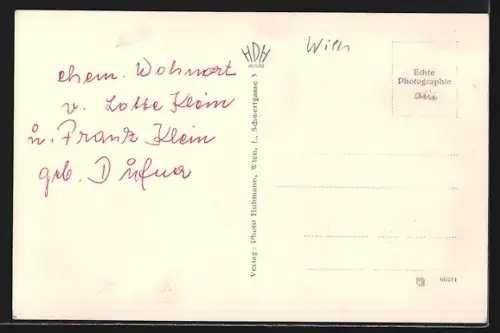 ehem. Wohnort
v. Lotte Klein
u. Franz Klein
geb.
HDH
Verlag: Photo Huhmann, Wien, I., Schwertgasse 3
Echte
Photographie